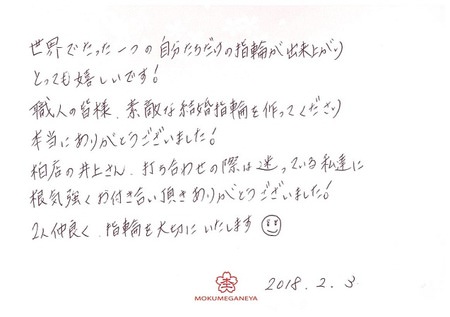 世界でたった一つの自分たちだけの指輪が出来上がり
とっても嬉しいです！
職人の皆様、素敵な結婚指輪を作ってくださり
本当にありがとうございました！
柏店の井上さん、打ち合わせの際は迷っている私達に
根気強くお付き合い頂きありがとうございました！
2人仲良く、指輪を大切にいたします
MOKUMEGANEYA
2018.2.3